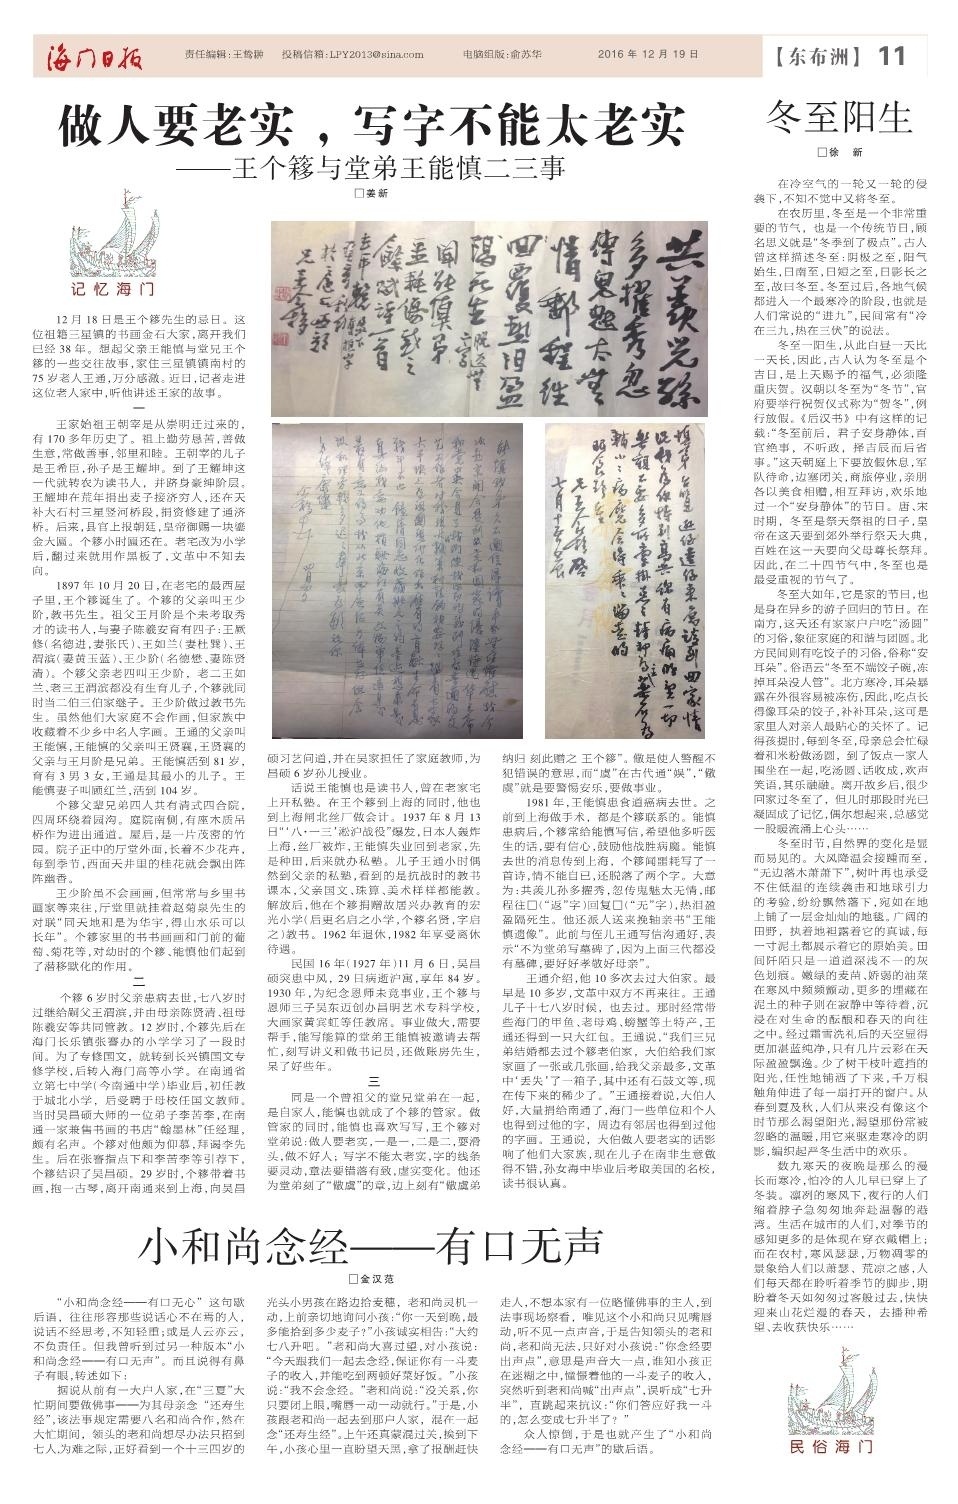 海门日报
责任编辑:王鸷翀 投稿信箱:LPY2013@sina.com 电脑组版:俞苏华 2016 年 12 月 19 日
【东布洲】 11
做人要老实，写字不能太老实
——王个簃与堂弟王能慎二三事
□姜新
记忆海门
12 月 18 日是王个簃先生的忌日。这
位祖籍三星镇的书画金石大家,离开我们
已经 38 年。想起父亲王能慎与堂兄王个
簃的一些交往故事,家住三星镇镇南村的
75 岁老人王通,万分感激。近日,记者走进
这位老人家中,听他讲述王家的故事。
一
王家始祖王朝宰是从崇明迁过来的,
有 170 多年历史了。祖上勤劳恳苦,善做
生意,常做善事,邻里和睦。王朝宰的儿子
是王希臣,孙子是王耀坤。到了王耀坤这
一代就转农为读书人，并跻身豪绅阶层。
王耀坤在荒年捐出麦子接济穷人,还在天
补大石村三星竖河桥段,捐资修建了通济
桥。后来,县官上报朝廷,皇帝御赐一块鎏
金大匾。个簃小时匾还在。老宅改为小学
后,翻过来就用作黑板了,文革中不知去
向。
1897 年 10 月 20 日,在老宅的最西屋
子里,王个簃诞生了。个簃的父亲叫王少
阶,教书先生。祖父王月阶是个未考取秀
才的读书人,与妻子陈羲安育有四子:王厥
修(名德进,妻张氏)、王如兰(妻杜巽)、王
渭滨(妻黄玉蓝)、王少阶(名德懋、妻陈贤
清)。个簃父亲老四叫王少阶，老二王如
兰、老三王渭滨都没有生育儿子,个簃就同
时当二伯三伯家继子。王少阶做过教书先
生。虽然他们大家庭不会作画,但家族中
收藏着不少乡中名人字画。王通的父亲叫
王能慎,王能慎的父亲叫王贤襄,王贤襄的
父亲与王月阶是兄弟。王能慎活到 81 岁,
育有 3 男 3 女,王通是其最小的儿子。王
能慎妻子叫顾红兰,活到 104 岁。
个簃父辈兄弟四人共有清式四合院,
四周环绕着园沟。庭院南侧,有座木质吊
桥作为进出通道。屋后,是一片茂密的竹
园。院子正中的厅堂外面,长着不少花卉,
每到季节,西面天井里的桂花就会飘出阵
阵幽香。
王少阶虽不会画画,但常常与乡里书
画家等来往,厅堂里就挂着赵菊泉先生的
对联“同天地和是为华宇,得山水乐可以
长年”。个簃家里的书书画画和门前的葡
萄、菊花等,对幼时的个簃、能慎他们起到
了潜移默化的作用。
二
个簃 6 岁时父亲患病去世,七八岁时
过继给嗣父王渭滨,并由母亲陈贤清,祖母
陈羲安等共同管教。12 岁时,个簃先后在
海门长乐镇张謇办的小学学习了一段时
间。为了专修国文，就转到长兴镇国文专
修学校,后转入海门高等小学。在南通省
立第七中学(今南通中学)毕业后,初任教
于城北小学，后受聘于母校任国文教师。
当时吴昌硕大师的一位弟子李苦李,在南
通一家兼售书画的书店“翰墨林”任经理,
颇有名声。个簃对他颇为仰慕,拜谒李先
生。后在张謇指点下和李苦李等引荐下,
个簃结识了吴昌硕。29 岁时,个簃带着书
画,抱一古琴,离开南通来到上海,向吴昌
硕习艺问道,并在吴家担任了家庭教师,为
昌硕 6 岁孙儿授业。
话说王能慎也是读书人,曾在老家宅
上开私塾。在王个簃到上海的同时,他也
到上海闸北丝厂做会计。1937 年 8 月 13
日“‘八·一三’淞沪战役”爆发,日本人轰炸
上海,丝厂被炸,王能慎失业回到老家,先
是种田,后来就办私塾。儿子王通小时偶
然到父亲的私塾,看到的是抗战时的教书
课本,父亲国文、珠算、美术样样都能教。
解放后,他在个簃捐赠故居兴办教育的宏
光小学(后更名启之小学,个簃名贤,字启
之)教书。1962 年退休,1982 年享受离休
待遇。
民国 16 年(1927 年)11 月 6 日,吴昌
硕突患中风，29 日病逝沪寓,享年 84 岁。
1930 年,为纪念恩师未竟事业,王个簃与
恩师三子吴东迈创办昌明艺术专科学校,
大画家黄宾虹等任教席。事业做大,需要
帮手,能写能算的堂弟王能慎被邀请去帮
忙,刻写讲义和做书记员,还做账房先生,
呆了好些年。
三
同是一个曾祖父的堂兄堂弟在一起,
是自家人,能慎也就成了个簃的管家。做
管家的同时,能慎也喜欢写写,王个簃对
堂弟说:做人要老实,一是一,二是二,耍滑
头,做不好人; 写字不能太老实,字的线条
要灵动,章法要错落有致,虚实变化。他还
为堂弟刻了“儆虞”的章,边上刻有“儆虞弟
纳归 刻此赠之 王个簃”。儆是使人警醒不
犯错误的意思,而“虞”在古代通“娱”,“儆
虞”就是要警惕安乐,要做事业。
1981 年,王能慎患食道癌病去世。之
前到上海做手术，都是个簃联系的。能慎
患病后,个簃常给能慎写信,希望他多听医
生的话,要有信心,鼓励他战胜病魔。能慎
去世的消息传到上海，个簃闻噩耗写了一
首诗,情不能自已,还脱落了两个字。大意
为:共羡儿孙多擢秀,忽传鬼魅太无情,邮
程往□(“返”字)回复□(“无”字),热泪盈
盈隔死生。他还派人送来挽轴亲书“王能
慎遗像”。此前与侄儿王通写信沟通好,表
示“不为堂弟写墓碑了,因为上面三代都没
有墓碑,要好好孝敬好母亲”。
王通介绍,他 10 多次去过大伯家。最
早是 10 多岁,文革中双方不再来往。王通
儿子十七八岁时候，也去过。那时经常带
些海门的甲鱼、老母鸡、螃蟹等土特产,王
通还得到一只大红包。王通说,“我们三兄
弟结婚都去过个簃老伯家，大伯给我们家
家画了一张或几张画,给我父亲最多,文革
中‘丢失’了一箱子,其中还有石鼓文等,现
在传下来的稀少了。”王通接着说,大伯人
好,大量捐给南通了,海门一些单位和个人
也得到过他的字，周边有邻居也得到过他
的字画。王通说，大伯做人要老实的话影
响了他们大家族,现在儿子在南非生意做
得不错,孙女海中毕业后考取美国的名校,
读书很认真。
冬至阳生
□徐 新
在冷空气的一轮又一轮的侵
袭下,不知不觉中又将冬至。
在农历里,冬至是一个非常重
要的节气，也是一个传统节日,顾
名思义就是“冬季到了极点”。古人
曾这样描述冬至:阴极之至,阳气
始生,日南至,日短之至,日影长之
至,故曰冬至。冬至过后,各地气候
都进入一个最寒冷的阶段,也就是
人们常说的“进九”,民间常有“冷
在三九,热在三伏”的说法。
冬至一阳生,从此白昼一天比
一天长,因此,古人认为冬至是个
吉日,是上天赐予的福气,必须隆
重庆贺。汉朝以冬至为“冬节”,官
府要举行祝贺仪式称为“贺冬”,例
行放假。《后汉书》中有这样的记
载:“冬至前后，君子安身静体,百
官绝事，不听政，择吉辰而后省
事。”这天朝庭上下要放假休息,军
队待命,边塞闭关,商旅停业,亲朋
各以美食相赠,相互拜访,欢乐地
过一个“安身静体”的节日。唐、宋
时期，冬至是祭天祭祖的日子,皇
帝在这天要到郊外举行祭天大典,
百姓在这一天要向父母尊长祭拜。
因此,在二十四节气中,冬至也是
最受重视的节气了。
冬至大如年,它是家的节日,也
是身在异乡的游子回归的节日。在
南方,这天还有家家户户吃“汤圆”
的习俗,象征家庭的和谐与团圆。北
方民间则有吃饺子的习俗,俗称“安
耳朵”。俗语云“冬至不端饺子碗,冻
掉耳朵没人管”。北方寒冷,耳朵暴
露在外很容易被冻伤,因此,吃点长
得像耳朵的饺子,补补耳朵,这可是
家里人对亲人最贴心的关怀了。记
得孩提时,每到冬至,母亲总会忙碌
着和米粉做汤圆，到了饭点一家人
围坐在一起,吃汤圆、话收成,欢声
笑语,其乐融融。离开故乡后,很少
回家过冬至了，但儿时那段时光已
凝固成了记忆,偶尔想起来,总感觉
一股暖流涌上心头……
冬至时节,自然界的变化是显
而易见的。大风降温会接踵而至,
“无边落木萧萧下”,树叶再也承受
不住低温的连续袭击和地球引力
的考验,纷纷飘然落下,宛如在地
上铺了一层金灿灿的地毯。广阔的
田野，执着地袒露着它的真诚,每
一寸泥土都展示着它的原始美。田
间阡陌只是一道道深浅不一的灰
色划痕。嫩绿的麦苗,娇弱的油菜
在寒风中频频颤动,更多的埋藏在
泥土的种子则在寂静中等待着,沉
浸在对生命的酝酿和春天的向往
之中。经过霜雪洗礼后的天空显得
更加湛蓝纯净,只有几片云彩在天
际盈盈飘逸。少了树干枝叶遮挡的
阳光,任性地铺洒了下来,千万根
触角伸进了每一扇打开的窗户。从
春到夏及秋,人们从来没有像这个
时节那么渴望阳光,渴望那份常被
忽略的温暖,用它来驱走寒冷的阴
影,编织起严冬生活中的欢乐。
数九寒天的夜晚是那么的漫
长而寒冷,怕冷的人儿早已穿上了
冬装。凛冽的寒风下,夜行的人们
缩着脖子急匆匆地奔赴温馨的港
湾。生活在城市的人们,对季节的
感知更多的是体现在穿衣戴帽上;
而在农村,寒风瑟瑟,万物凋零的
景象给人们以萧瑟、荒凉之感,人
们每天都在聆听着季节的脚步,期
盼着冬天如匆匆过客般过去,快快
迎来山花烂漫的春天，去播种希
望、去收获快乐……
民俗海门
小和尚念经——有口无声
□金汉范
“小和尚念经——有口无心”这句歇
后语，往往形容那些说话心不在焉的人,
说话不经思考,不知轻重;或是人云亦云,
不负责任。但我曾听到过另一种版本“小
和尚念经——有口无声”。而且说得有鼻
子有眼,转述如下:
据说从前有一大户人家,在“三夏”大
忙期间要做佛事——为其母亲念“还寿生
经”,该法事规定需要八名和尚合作,然在
大忙期间，领头的老和尚想尽办法只招到
七人,为难之际,正好看到一个十三四岁的
光头小男孩在路边拾麦穗，老和尚灵机一
动,上前亲切地询问小孩:“你一天到晚,最
多能拾到多少麦子?”小孩诚实相告:“大约
七八升吧。”老和尚大喜过望,对小孩说:
“今天跟我们一起去念经,保证你有一斗麦
子的收入,并能吃到两顿好菜好饭。”小孩
说:“我不会念经。”老和尚说:“没关系,你
只要闭上眼,嘴唇一动一动就行。”于是,小
孩跟老和尚一起去到那户人家，混在一起
念“还寿生经”。上午还真蒙混过关,挨到下
午,小孩心里一直盼望天黑,拿了报酬赶快
走人,不想本家有一位略懂佛事的主人,到
法事现场察看，唯见这个小和尚只见嘴唇
动,听不见一点声音,于是告知领头的老和
尚,老和尚无法,只好对小孩说:“你念经要
出声点”,意思是声音大一点,谁知小孩正
在迷糊之中,憧憬着他的一斗麦子的收入,
突然听到老和尚喊“出声点”,误听成“七升
半”，直跳起来抗议:“你们答应好我一斗
的,怎么变成七升半了？”
众人惊倒,于是也就产生了“小和尚
念经——有口无声”的歇后语。